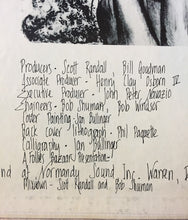 Producers · Scott Randall · Bill Goodman
Associate Producer · Henri Clay Osborn IV
Executive Producer · John Peter
Engineers · Bob Shuman, Bob Windsor
Cover Painting · Jan Ballinger
Back Cover Lithograph · Phil Paquette
Calligraphy · Jan Ballinger
A Folks Bazaar Presentation
nd at Normandy Sound Inc. Warren,
Mixdown · Scot Randall and Bob Shuman